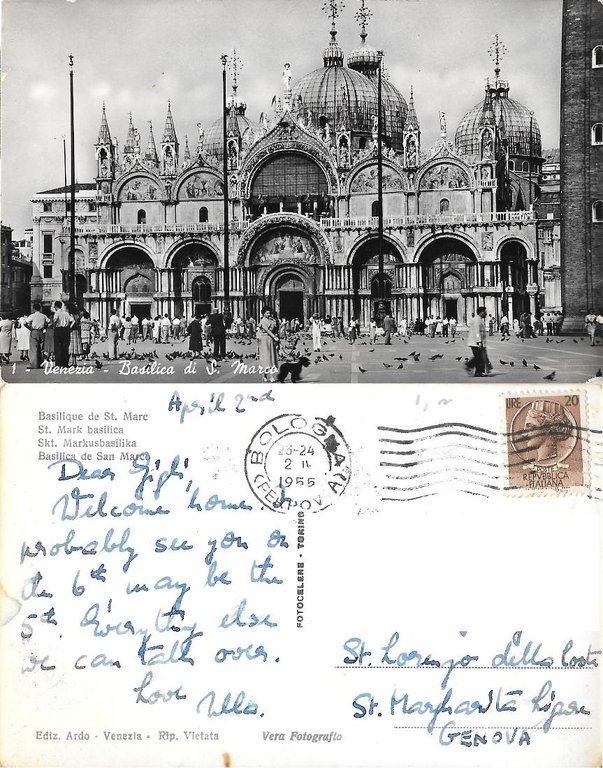 1 - Venezia - Basilica di S. Marco
April 2nd
Basilique de St. Marc
St. Mark basilica
Skt. Markusbasilika
Basilica de San Marco
BOLOGNA
23-24
2 IV
1955
(FERROV A)
LIRE 20
POSTE
REPVBBLICA
ITALIANA
Dear Gigli,
Welcome home. I
probably see you on
the 6th may be the
5th. Everything else
we can talk over.
Love
Ulla.
FOTOCELERE - TORINO
St. Lorenzo della Costa
St. Margharita Ligure
GENOVA
Ediz. Ardo - Venezia - Rip. Vietata
Vera Fotografia